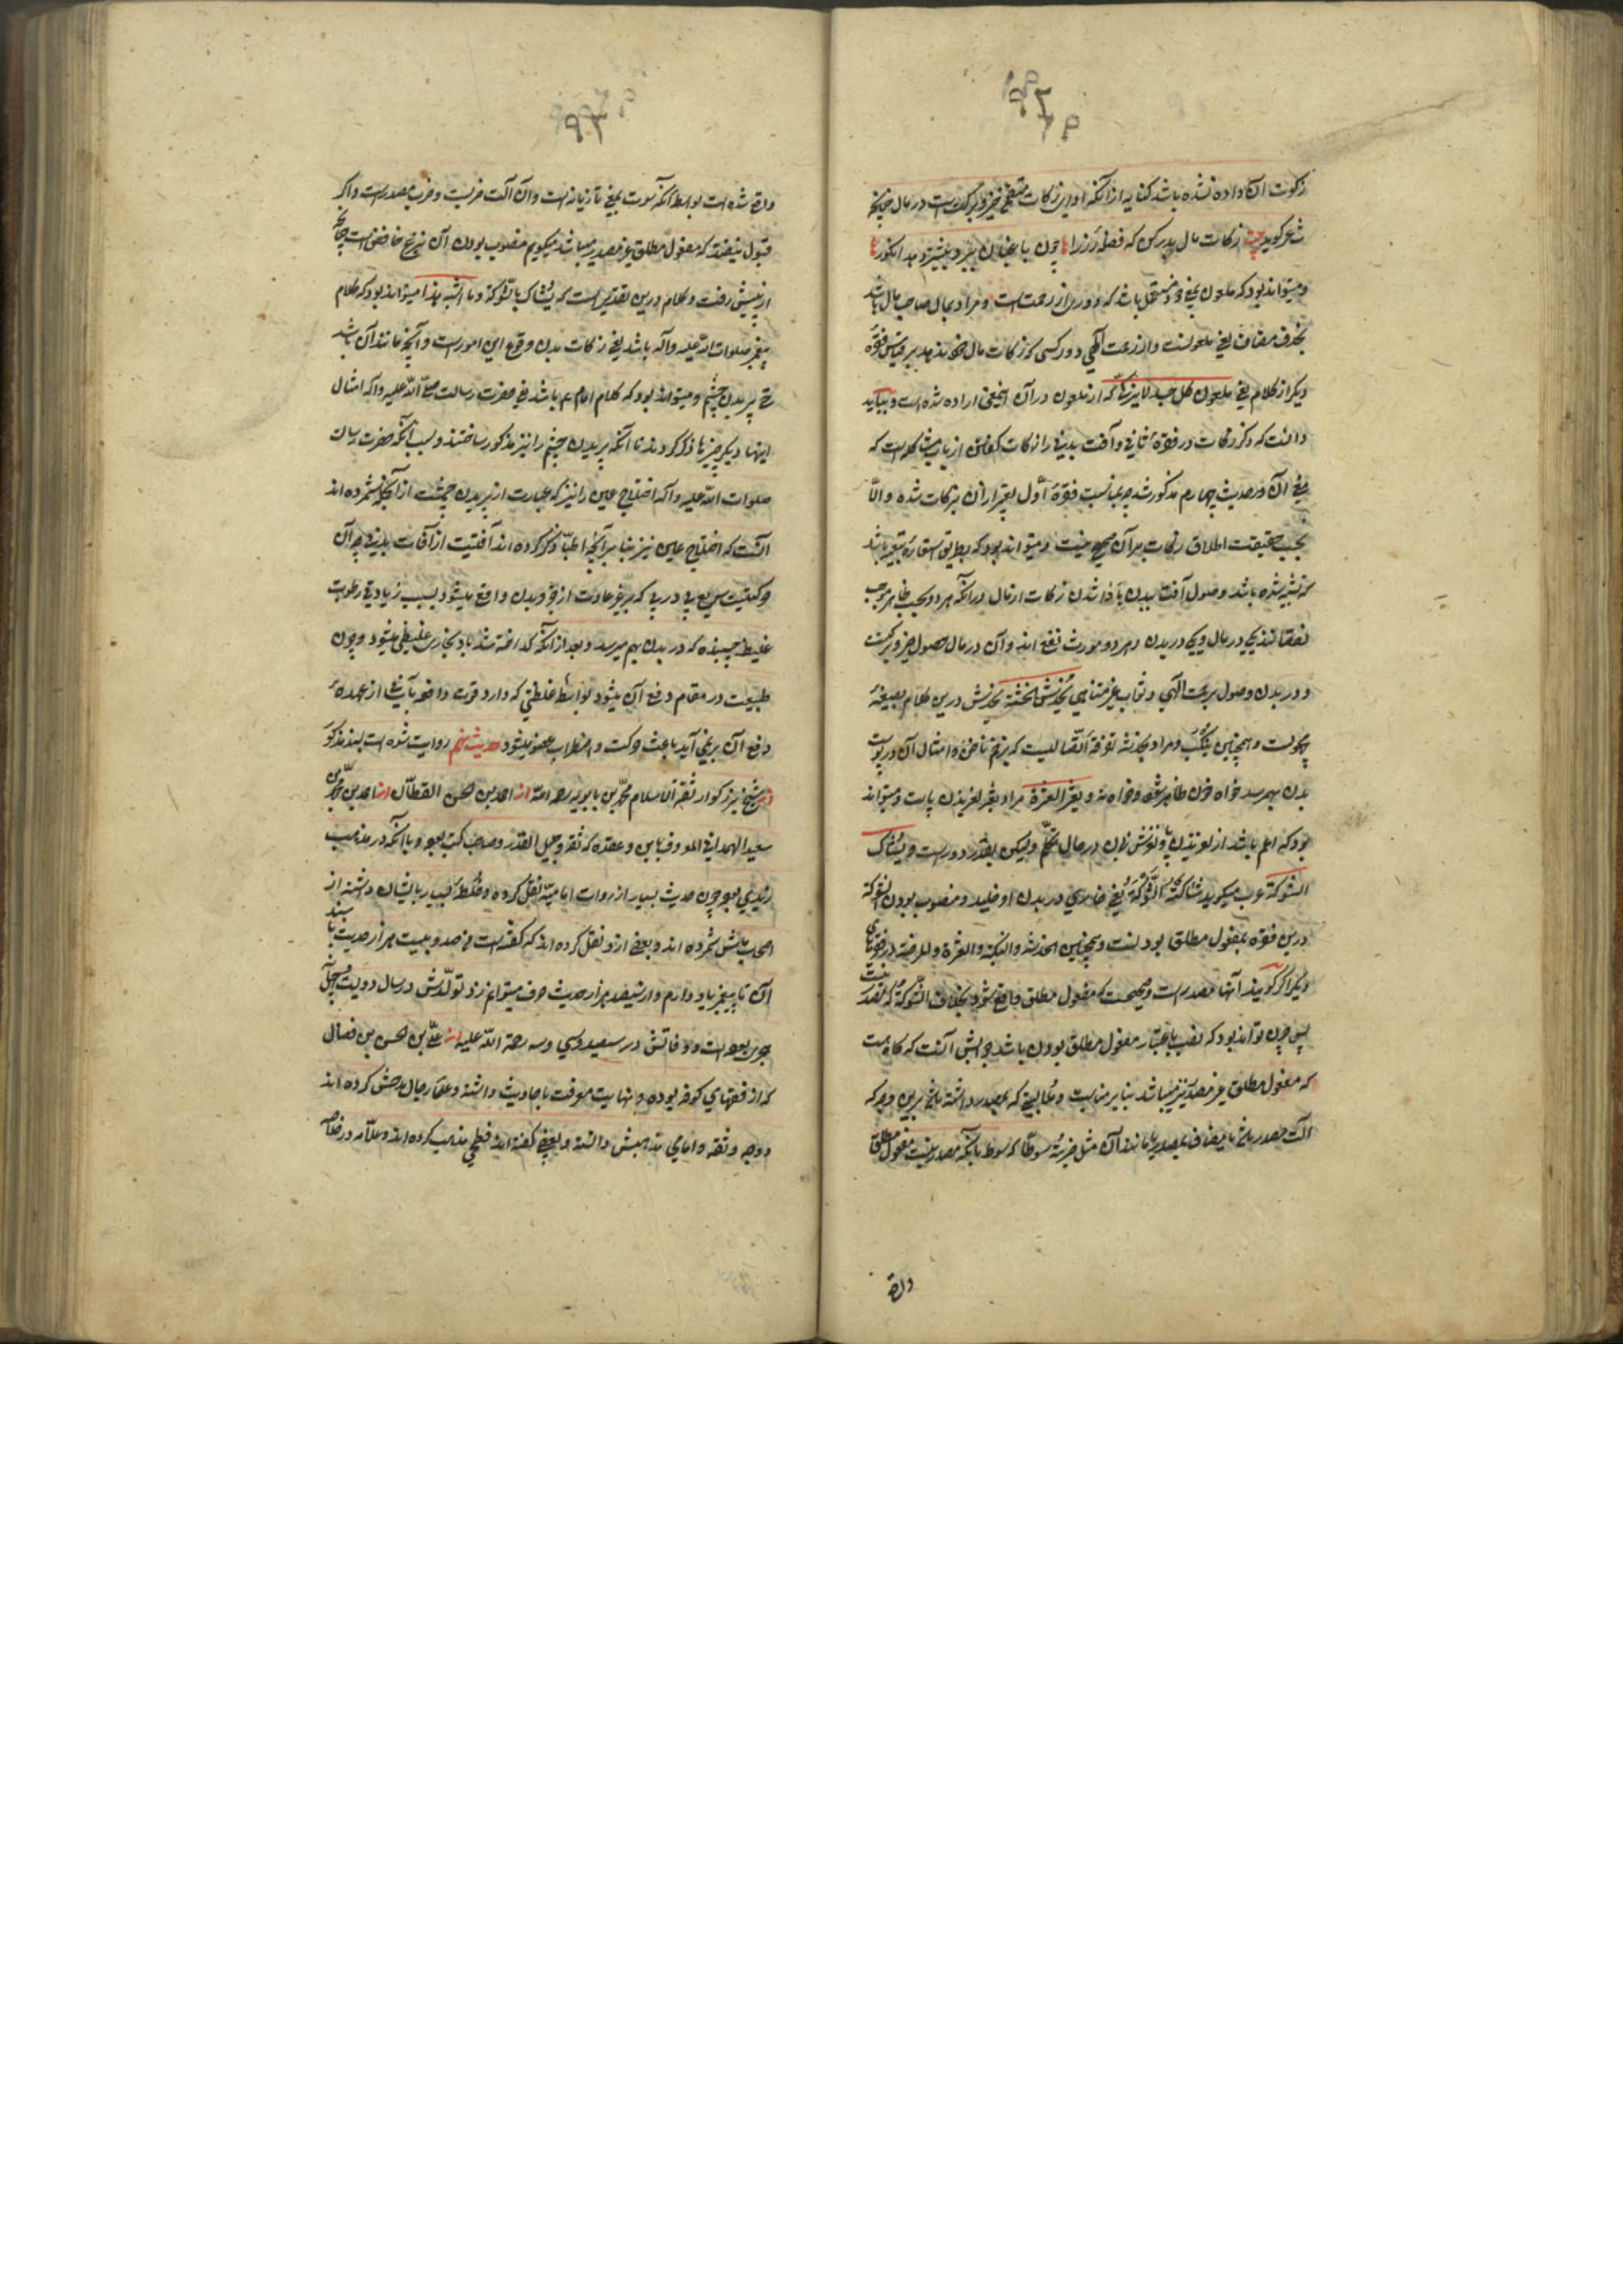 زکوت آن داده نشده باشد کنایه از آنکه ادای زکات مقتضی خیر و برکت است در مال چنانچه
شاعر گوید بیت زکات مال بدر کن که فضله رز را چون باغبان ببرد بیشتر دهد انگور
و میتواند بود که ملعون بمعنی خود مستعمل باشد که دوری از رحمت است و مراد بمال صاحب مال باشد
بحذف مضاف یعنی ملعونست و از رحمت الهی دور کسی که زکات مال خود ندهد بر قیاس فقره
دیگر از کلام یعنی ملعون کل جسد لا یزکی که از ملعون در آن اینمعنی اراده شده است و بباید
دانست که ذکر زکات در فقره ثانی و آفت بدنی را زکات گفتن از باب مشاکله است که
معنی آن در حدیث چهارم مذکور شد چه بمناسبت فقره اول تعبیر از آن بزکات شده و الّا
بحسب حقیقت اطلاق زکات بر آن صحیح نیست و میتواند بود که بطریق استعاره تبعیه باشد
که تشبیه شده باشد وصول آفت ببدن بادا شدن زکات از مال در آنکه هر دو بحسب ظاهر موجب
نقصانند یکی در مال و یکی در بدن و هر دو مورث نفع اند و آن در مال حصول خیر و برکت
و در بدن وصول برحمت الهی و ثواب غیر متناهی یُخدش الخدشة یخدش درین کلام بصیغه
مجهولست و همچنین ینکب و مراد بخدشه تفرقه اتصالیست که بزخم ناخن و امثال آن در پوست
بدن بهمرسد خواه خون ظاهر شود و خواه نه و یعثر العثرة مراد بعثر لغزیدن پاست و میتواند
بود که اعم باشد از لغزیدن پا و لغزش زبان در حال تکلم و لیکن بغایت دور است و یُشاک
الشوکة عرب میگوید شاکته الشّوکة یعنی خاری در بدن او خلید و منصوب بودن الشوکة
درین فقره بمفعول مطلق بودنست و همچنین الخدشة و النکبة و العثرة و المرضة در فقرهای
دیگر اگر گویند آنها مصدر است و صحیحست که مفعول مطلق واقع شود بخلاف الشّوکة که مصدر نیست
پس چون تواند بود که نصب باعتبار مفعول مطلق بودن باشد جوابش آنست که گاه هست
که مفعول مطلق غیر مصدر نیز میباشد بنابر مناسبت و ملابستی که بمصدر داشته باشد برین وجه که
آلت مصدر باشد یا مضاف بمصدر یا مانند آن مثل ضربتُه سوطًا که سوط با آنکه مصدر نیست مفعول مطلق
واقع
واقع شده است بواسطه آنکه سوط بمعنی تازیانه است و آن آلت ضربست و ضرب مصدر است و اگر
قبول نیفتد که مفعول مطلق غیر مصدر میباشد میگویم منصوب بودن آن بنزع خافض است چنانچه
از پیش رفت و کلام درین تقدیر است که یُشاک بالشّوکة و ما اشبه هذا میتواند بود که کلام
پیغمبر صلوات الله علیه و آله باشد یعنی زکات بدن وقوع این امور است و آنچه مانند آن باشد
حتی پریدن چشم و میتواند بود که کلام امام ع باشد یعنی حضرت رسالت صلّی الله علیه و آله امثال
اینها دیگر چیزها ذکر کردند تا آنکه پریدن چشم را نیز مذکور ساختند و سبب آنکه حضرت رسالت
صلوات الله علیه و آله اختلاج عین را نیز که عبارت از پریدن چشمست از آنجمله شمرده اند
آنست که اختلاج عین نیز بنا بر آنچه اطبّا ذکر کرده اند آفتیست از آفات بدنی چه آن
حرکتیست سریع پی در پی که بر غیر عادت از جزو بدن واقع میشود بسبب زیادتی رطوبت
غلیظ چسبنده که در بدن بهم میرسد و بعد از آنکه گداخته شد باد بخاری غلیظی میشود و چون
طبیعت در مقام دفع آن میشود بواسطه غلظتی که دارد قوت دافعه بآسانی از عهده
دفع آن بر نمی آید باعث حرکت و اضطراب عضو میشود حدیث پنجم روایت شده است بسند مذکور
از شیخ بزرگوار ثقة الاسلام محمّد بن بابویه رحمه الله از احمد بن الحسن القطّان از احمد بن محمّد بن
سعید الهمدانی المعروف بابن عقده که ثقه و جلیل القدر و صاحب کتب بود و با آنکه در مذهب
زیدی بود چون حدیث بسیار از روات امامیه نقل کرده و خُلطه بسیار بایشان داشته از
اصحابش شمرده اند و بعضی ازو نقل کرده اند که گفته است من صد و بیست هزار حدیث با سند
آن تا پیغمبر یاد دارم و از سیصد هزار حدیث حرف میتوانم زد تولّدش در سال دویست و چهل و نه
هجری بوده است و وفاتش در سیصد و سی و سه رحمة الله علیه از علی بن الحسن بن فضال
که از فقهای کوفه بوده و نهایت معرفت باحادیث داشته و علماء رجال مدحش کرده اند
و وجه و ثقه و امامی مذهبش دانسته و بعضی گفته اند فطحی مذهب کرده اند و علّامه در خلاصه